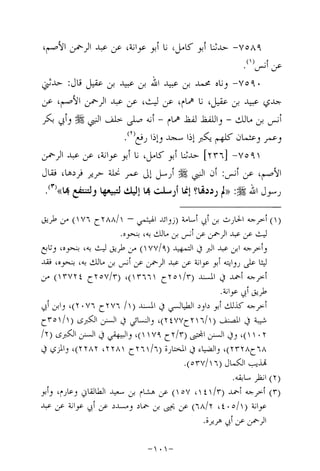 ٧٥٨٩- حدثنا أبو كامل، نا أبو عوانة، عن عبد الرحمن الأصم،
عن أنس(١).
٧٥٩٠- وناه محمد بن عبيد الله بن عبيد بن عقيل قال: حدثني
جدي عبيد بن عقيل، نا همام، عن ليث، عن عبد الرحمن الأصم، عن
أنس بن مالك – واللفظ لفظ همام – أنه صلى خلف النبي ﷺ وأبي بكر
وعمر وعثمان كلهم يكبر إذا سجد وإذا رفع(٢).
٧٥٩١- [٢٣٦] حدثنا أبو كامل، نا أبو عوانة، عن عبد الرحمن
الأصم، عن أنس: أن النبي ﷺ أرسل إلى عمر بحلة حرير فردها، فقال
رسول الله ﷺ: «لم رددتها؟ إنما أرسلت بها إليك لتبيعها ولتنتفع بها»(٣).
(١) أخرجه الحارث بن أبي أسامة (زوائد الهيثمي – ٢٨٨/١ ح ١٧٦) من طريق
ليث عن عبد الرحمن عن أنس بن مالك به، بنحوه.
وأخرجه ابن عبد البر في التمهيد (١٧٧/٩) من طريق ليث به، بنحوه، وتابع
ليثا على روايته أبو عوانة عن عبد الرحمن عن أنس بن مالك به، بنحوه، فقد
أخرجه أحمد في المسند (٢٥١/٣ ح ١٣٦٦١)، (٢٥٧/٣ ح ١٣٧٢٤) من
طريق أبي عوانة.
أخرجه كذلك أبو داود الطيالسي في المسند (١/ ٢٧٦ ح ٢٠٧٦)، وابن أبي
شيبة في المصنف (٢١٦/١ح٢٤٧٧)، والنسائي في السنن الكبرى (٣٥١/١ح
١١٠٢)، وفي السنن المجتبى (٢/٣ ح ١١٧٩)، والبيهقي في السنن الكبرى (٢/
٦٨ح٢٣٢٨)، والضياء في المختارة (٢٦١/٦ح ٢٢٨١، ٢٢٨٢)، والمزي في
تهذيب الكمال (٥٣٧/١٦).
(٢) انظر سابقه.
(٣) أخرجه أحمد (١٤١/٣، ١٥٧) عن هشام بن سعيد الطالقاني وعارم، وأبو
عوانة (٤٠٥/١، ٦٨/٢) عن يحيى بن حماد ومسدد عن أبي عوانة عن عبد
الرحمن عن أبي هريرة.
-١٠١-